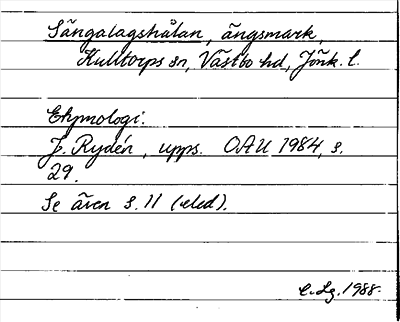 Sängalagshålan, ängsmark,
Kulltorps sn, Västbo hd, Jönk. l.
Etymologi:
J. Rydén, upps. OAU 1984, s.
29.
Se även s. 11 (-led).
C. Lg. 1988.